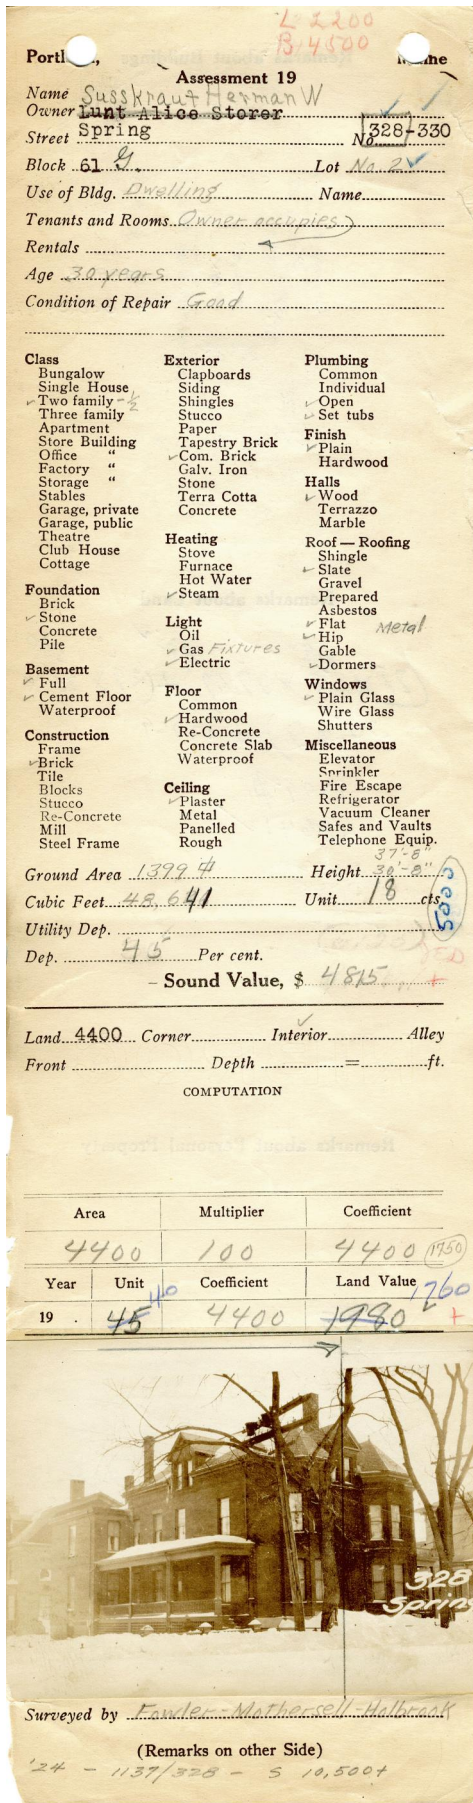 L 2200
B 14500
Portl , ne
Assessment 19
Name Susskraut Herman W
Owner Lunt Alice Storer
Street Spring No. 328-330
Block 61 G. Lot No. 2
Use of Bldg. Dwelling Name
Tenants and Rooms Owner occupies
Rentals
Age 30 years
Condition of Repair Good
Class
Bungalow
Single House
Two family - 1/2
Three family
Apartment
Store Building
Office "
Factory "
Storage "
Stables
Garage, private
Garage, public
Theatre
Club House
Cottage
Foundation
Brick
Stone
Concrete
Pile
Basement
Full
Cement Floor
Waterproof
Construction
Frame
Brick
Tile
Blocks
Stucco
Re-Concrete
Mill
Steel Frame
Exterior
Clapboards
Siding
Shingles
Stucco
Paper
Tapestry Brick
Com. Brick
Galv. Iron
Stone
Terra Cotta
Concrete
Heating
Stove
Furnace
Hot Water
Steam
Light
Oil
Gas Fixtures
Electric
Floor
Common
Hardwood
Re-Concrete
Concrete Slab
Waterproof
Ceiling
Plaster
Metal
Panelled
Rough
Plumbing
Common
Individual
Open
Set tubs
Finish
Plain
Hardwood
Halls
Wood
Terrazzo
Marble
Roof — Roofing
Shingle
Slate
Gravel
Prepared
Asbestos
Flat Metal
Hip
Gable
Dormers
Windows
Plain Glass
Wire Glass
Shutters
Miscellaneous
Elevator
Sprinkler
Fire Escape
Refrigerator
Vacuum Cleaner
Safes and Vaults
Telephone Equip.
37'-8"
Ground Area 1399 Height 30'-8"
Cubic Feet 48,641 Unit 18 cts.
5000
Utility Dep.
Dep. 45 Per cent.
Sound Value, $ 4815
Land 4400 Corner Interior Alley
Front Depth = ft.
COMPUTATION
Area Multiplier Coefficient
4400 100 4400 1750
Year Unit Coefficient Land Value
40 1760
19 . 45 4400 1980
328
Spring
Surveyed by Fowler-Mothersell-Holbrook
(Remarks on other Side)
'24 - 1137/328 - S 10,500+